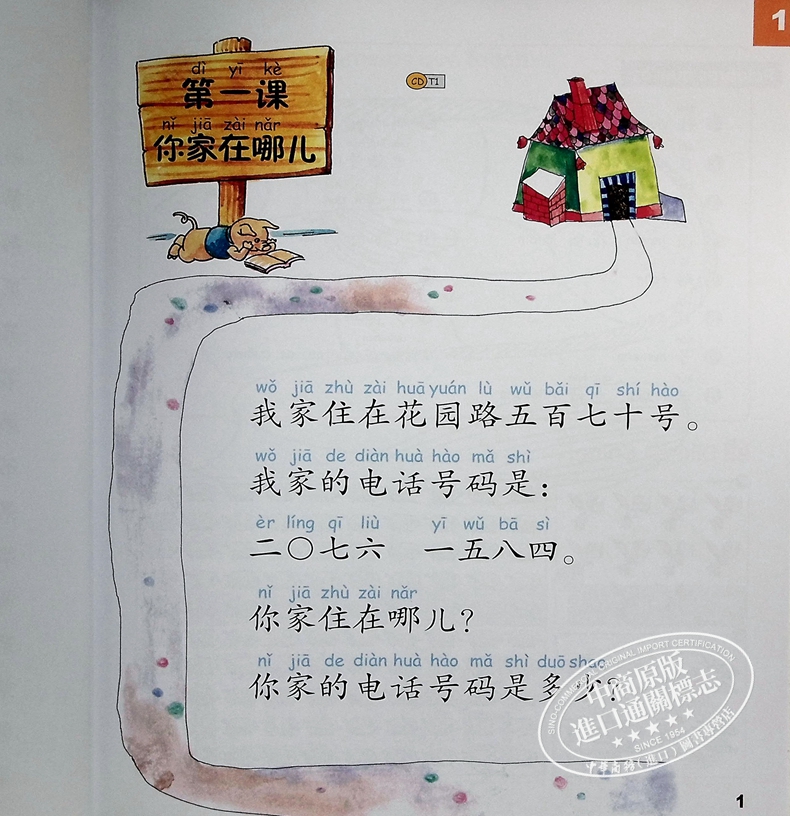 1
dì yī kè
第一课
nǐ jiā zài nǎr
你家在哪儿
CD T1
wǒ jiā zhù zài huā yuán lù wǔ bǎi qī shí hào
我家住在花园路五百七十号。
wǒ jiā de diàn huà hào mǎ shì
我家的电话号码是：
èr líng qī liù yī wǔ bā sì
二〇七六 一五八四。
nǐ jiā zhù zài nǎr
你家住在哪儿？
nǐ jiā de diàn huà hào mǎ shì duō shao
你家的电话号码是多少？
ORIGINAL IMPORT CERTIFICATION
中商原版
進口通關標志
SINCE 1954
1